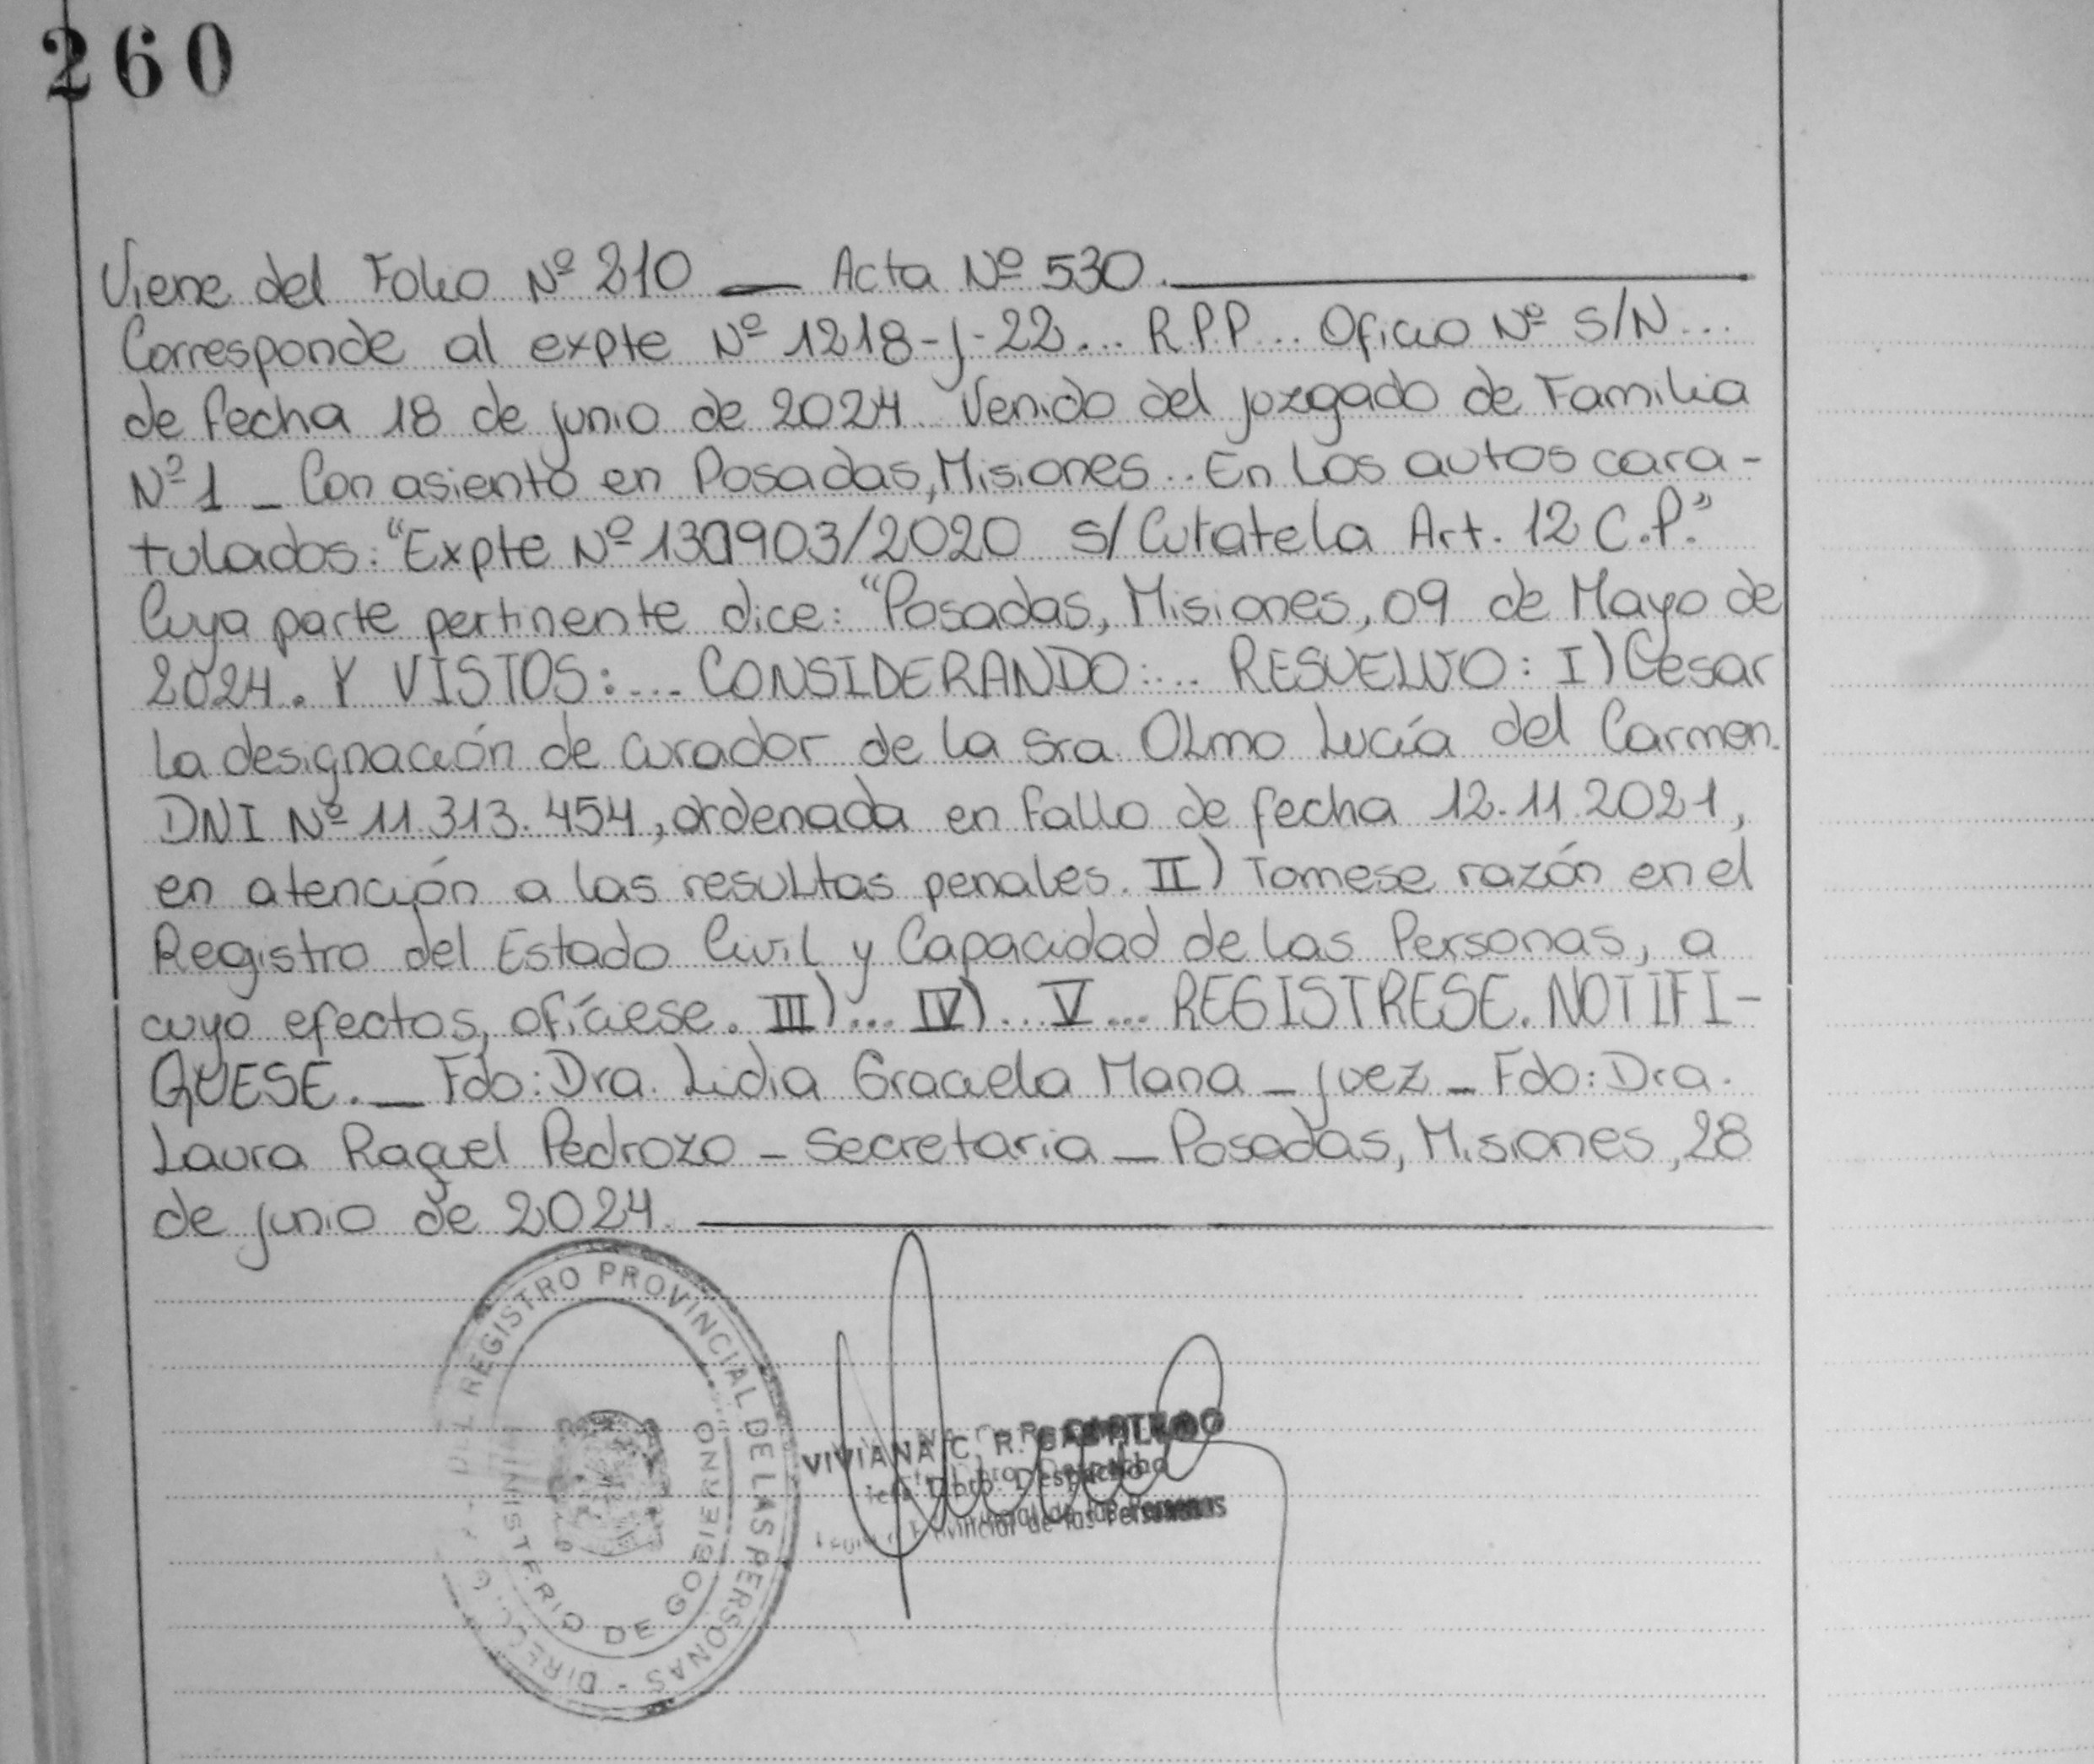 260
Viene del Folio Nº 210 — Acta Nº 530.
Corresponde al expte Nº 1218-J-22... R.P.P... Oficio Nº S/N...
de fecha 18 de junio de 2024. Venido del juzgado de Familia
Nº 1 _ Con asiento en Posadas, Misiones... En los autos cara-
tulados: "Expte Nº 130903/2020 s/ Curatela Art. 12 C.P."
Cuya parte pertinente dice: "Posadas, Misiones, 09 de Mayo de
2024. Y VISTOS:... CONSIDERANDO:... RESUELVO: I) Cesar
la designación de curador de la Sra. Olmo Lucía del Carmen.
DNI Nº 11.313.454, ordenada en fallo de fecha 12.11.2021,
en atención a las resultas penales. II) Tomese razón en el
Registro del Estado Civil y Capacidad de las Personas, a
cuyo efectos, ofíciese. III)... IV)... V... REGISTRESE. NOTIFI-
QUESE. _ Fdo: Dra. Lidia Graciela Mana _ Juez _ Fdo: Dra.
Laura Raquel Pedrozo - Secretaria _ Posadas, Misiones, 28
de junio de 2024.
REGISTRO PROVINCIAL DE LAS PERSONAS
MINISTERIO DE GOBIERNO
VIVIANA C. R. CASTILLO
Jefa Dpto. Despacho
Provincial de las Personas